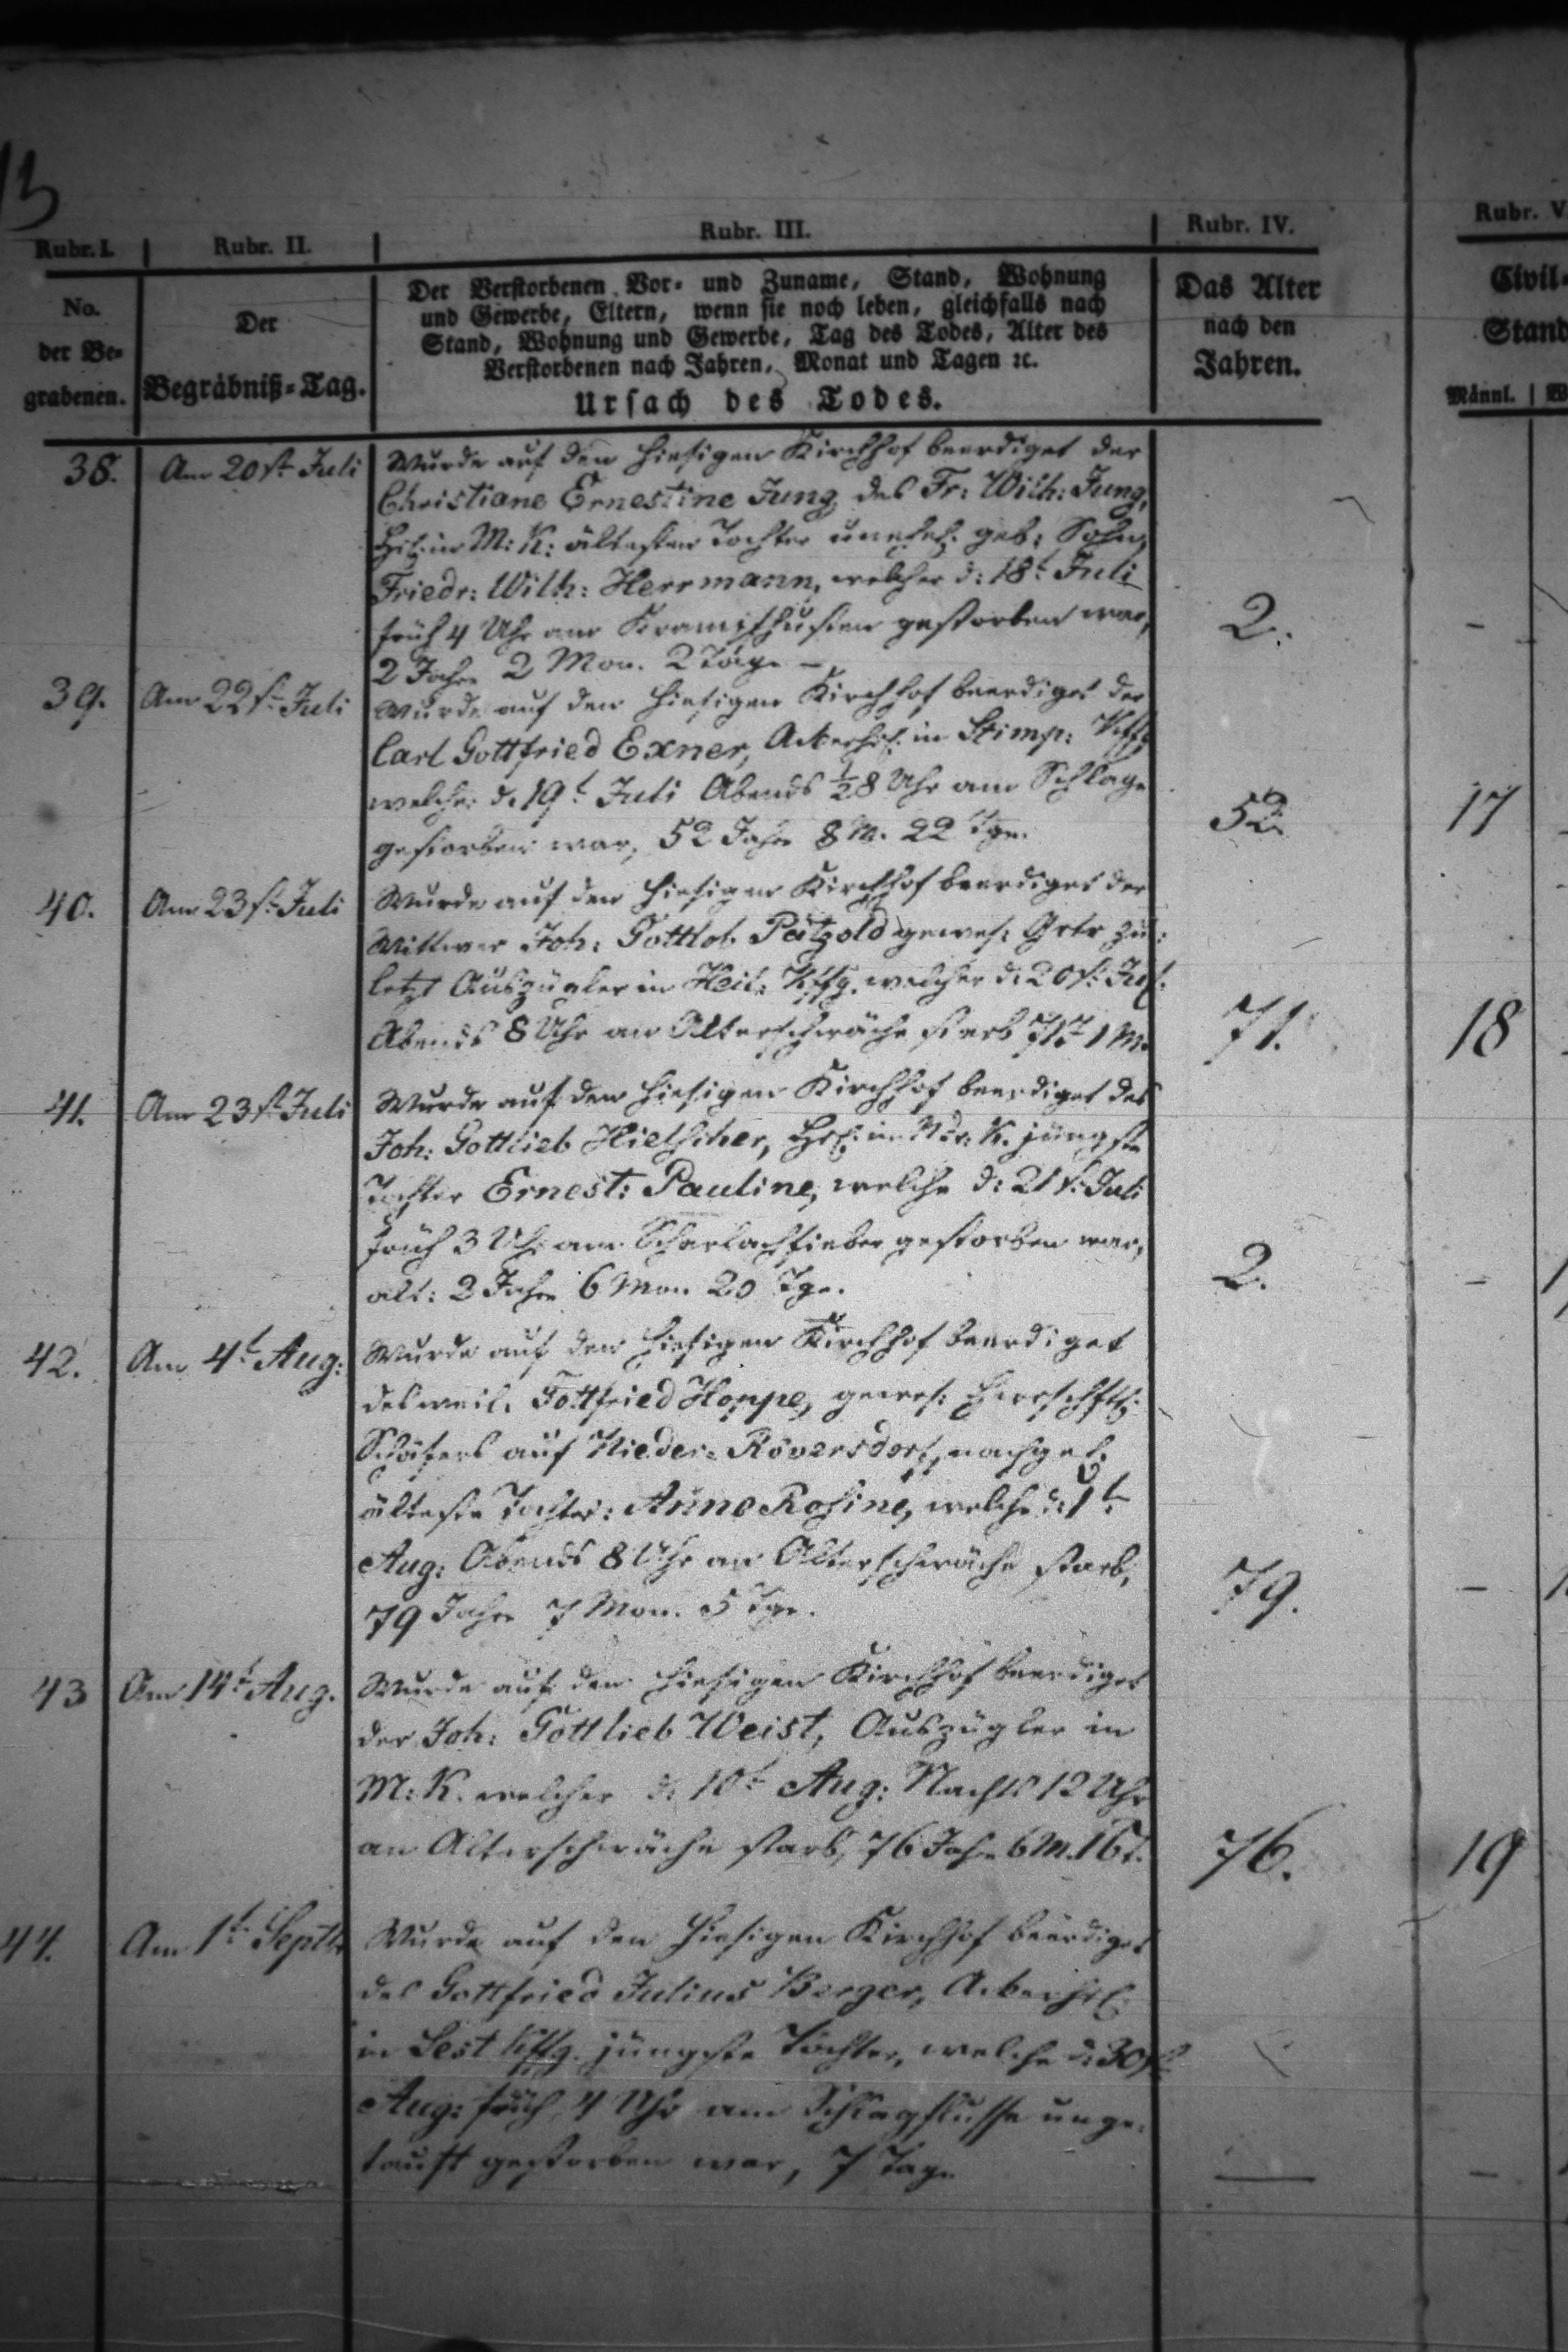 13
Rubr. I. Rubr. II. Rubr. III. Rubr. IV. Rubr. V
No. der Be= grabenen.
Der Begräbniß=Tag.
Der Verstorbenen Vor= und Zuname, Stand, Wohnung
und Gewerbe, Eltern, wenn sie noch leben, gleichfalls nach
Stand, Wohnung und Gewerbe, Tag des Todes, Alter des
Verstorbenen nach Jahren, Monat und Tagen ꝛc.
Ursach des Todes.
Das Alter
nach den
Jahren.
Civil=
Stand
Männl. W
38. Am 20st Juli Wurde auf den hiesigen Kirchhof beerdiget der
Christiane Ernestine Jung, des Fr: Wilh: Jung,
in M: K: ältesten Tochter unehel. geb: Sohn,
Friedr: Wilh: Herrmann, welcher d: 18t Juli
früh 4 Uhr am Krampfhusten gestorben war, 2. -
2 Jahre 2 Mon. 2 Tage -
39. Am 22st Juli Wurde auf den hiesigen Kirchhof beerdiget der
Carl Gottfried Exner, Ackerhsl. in Stimp:
welcher d. 19t Juli Abends ½8 Uhr am Schlage
gestorben war, 52 Jahre 8 M. 22 Tge. 52. 17
40. Am 23st Juli Wurde auf den hiesigen Kirchhof beerdiget der
Wittwer Joh: Gottlob Pätzold gewes: Grtr zu=
letzt Auszügler in Heil: Kffg. welcher d: 20st Jul.
Abends 8 Uhr an Alterschwäche starb 71 J. 1 M. 71. 18
41. Am 23st Juli Wurde auf den hiesigen Kirchhof beerdiget des
Joh: Gottlieb Hielscher, Hsl: in Ndr: K. jüngste
Tochter Ernest: Pauline, welche d: 21st Juli
früh 3 Uhr am Scharlachfieber gestorben war,
alt: 2 Jahre 6 Mon 20 Tge. 2. -
42. Am 4t Aug: Wurde auf den hiesigen Kirchhof beerdiget
des weil. Gottfried Hoppe, gewes: herrschftl:
Schäfers auf Nieder= Röversdorf, nachgel:
älteste Tochter: Anne Rosine, welche d: 1t
Aug: Abends 8 Uhr an Alterschwäche starb,
79 Jahre 7 Mon. 5 Tge. 79. -
43 Am 14t Aug. Wurde auf den hiesigen Kirchhof beerdiget
der Joh: Gottlieb Weist, Auszügler in
M: K. welcher d: 10t Aug: Nachts 12 Uhr
an Alterschwäche starb, 76 Jahre 6 M. 16 T. 76. 19
44. Am 1t Septbr Wurde auf den hiesigen Kirchhof beerdiget
des Gottfried Julius Berger, Ackerhsl:
in Kffg. jüngste Tochter, welche d: 30st
Aug: früh 4 Uhr am Schlagflusse unge=
tauft gestorben war, 7 Tage — -